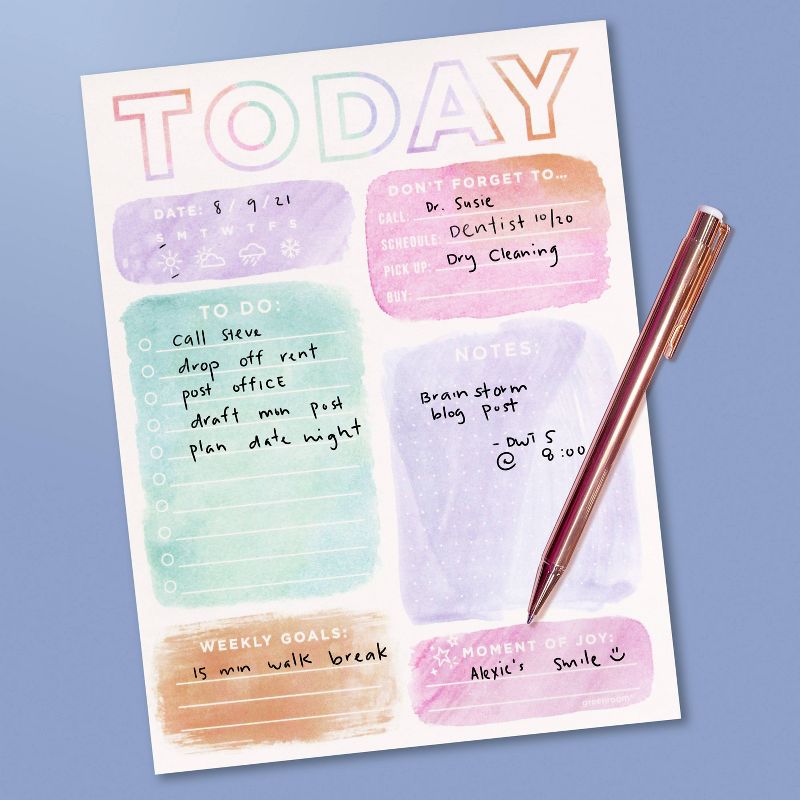 TODAY
DATE: 8 / 9 / 21
S M T W T F S
DON'T FORGET TO...
CALL: Dr. Susie
SCHEDULE: Dentist 10/20
PICK UP: Dry Cleaning
BUY:
TO DO:
call steve
drop off rent
post office
draft mon post
plan date night
NOTES:
Brainstorm
blog post
- DWT S
@ 8:00
WEEKLY GOALS:
15 min walk break
MOMENT OF JOY:
Alexie's smile
greenroom